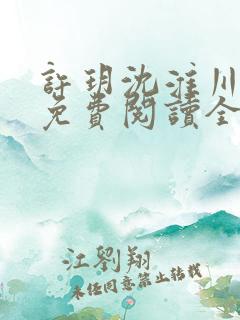 許玥沈淮川
免費閱讀全
江劉翔
未经同意禁止转载